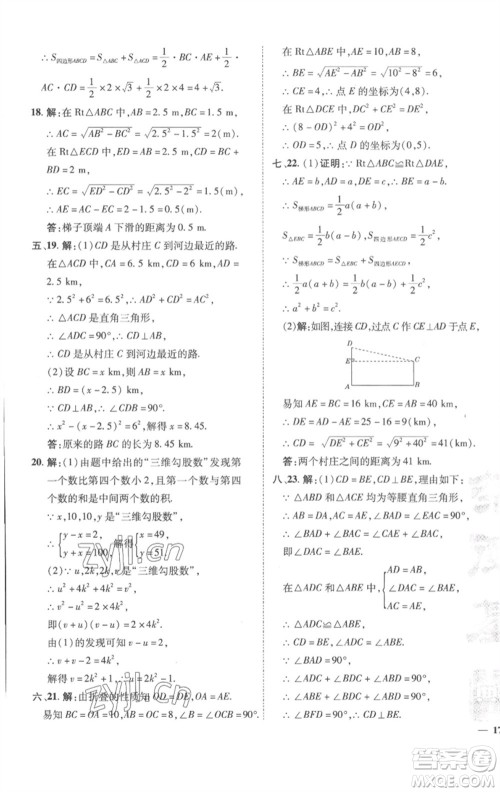 ∴ S四边形ABCD=S△ABC+S△ACD=1/2·BC·AE+1/2·
AC·CD=1/2×2×√3+1/2×2×4=√3+4.
18. 解:在 Rt△ABC 中,AB=2.5 m,BC=1.5 m,
∴ AC=√(AB²-BC²)=√(2.5²-1.5²)=2(m).
在 Rt△ECD 中,CD=CB+BD=2 m,
∴ EC=√(ED²-CD²)=√(2.5²-2²)=1.5(m).
∴ AE=AC-EC=2-1.5=0.5(m).
答:梯子顶端 A 下滑的距离为 0.5 m.
五、19. 解:(1)CD 是从村庄 C 到河边最近的路.
在△ADC 中,AC=6.5 km,CD=6 km,AD=
2.5 km,
∵ 2.5²+6²=6.5²,∴ AD²+CD²=AC².
∴ △ADC 为直角三角形,
∴ ∠CDA=90°.∴ CD⊥AB,
∴ CD 是从村庄 C 到河边最近的路.
(2)设 BC=x km,则 BD=(x-2.5)km.
∵ CD⊥AB,∴ ∠CDB=90°.
∴ x²-(x-2.5)²=6²,解得 x=8.45.
答:原来的路线 BC 的长为 8.45 km.
20. 解:(1)由题中给出的“三维勾股数”发现第
一个数比第四个数小 2,且第一个数与第四
个数的和是中间两个数的积.
∵ x,10,10,y 是“三维勾股数”,
∴ {y-x=2, y+x=100, 解得{x=49, y=51.
(2)∵ u,2k,2k,v 是“三维勾股数”,
∴ u²+4k²+4k²=v²,∴ v²-u²=8k²,
即(v+u)(v-u)=2×4k².
由(1)的发现可知 v-u=2,v+u=4k²,
∴ v+v-2=4k²,
解得 v=1+2k²,∴ u=2k²-1.
六、21. 解:由折叠的性质知 OD=DE,OA=AE.
易知 BC=OA=10,AB=OC=8,∠B=90°,
在 Rt△ABE 中,AE=10,AB=8,
∴ BE=√(AE²-AB²)=√(10²-8²)=6.
∴ CE=4.∴ 点 E 的坐标为(4,8).
在 Rt△DCE 中,DC²+CE²=DE²,
∴ (8-OD)²+4²=OD²,∴ OD=5.
∴ 点 D 的坐标为(0,5).
七、22. (1)证明:∵ Rt△ABC≌Rt△DAE,
∴ ∠ADE=∠BAC.
∴ ∠DAE+∠BAC=∠DAE+∠ADE=90°.
∴ AD⊥AC.
∴ S梯形ABCD=1/2a(a+b),
S△EBC=1/2b(a-b),S四边形AECD=1/2c²,
∵ S梯形ABCD=S△EBC+S四边形AECD,
∴ 1/2a(a+b)=1/2b(a-b)+1/2c².
∴ a²+b²=c².
(2)解:如图,连接 CD,过点 C 作 CE⊥AD 于点 E,
D
E C
A B
易知 AE=BC=16 km,CE=AB=40 km,
∴ DE=AD-AE=25-16=9(km).
∴ CD=√(DE²+CE²)=√(9²+40²)=41(km).
答:两个村庄之间的距离为 41 km.
八、23. 解:(1)CD=BE,CD⊥BE,理由如下:
∵ △ABD 和△ACE 均为等腰直角三角形,
∴ AB=AD,AE=AC,∠BAD=∠CAE=90°.
∴ ∠BAD+∠BAC=∠CAE+∠BAC,
即∠DAC=∠BAE.
在△ADC 和△ABE 中,{AD=AB, ∠DAC=∠BAE, AC=AE,
∴ △ADC≌△ABE.
∴ CD=BE,∠ADC=∠ABE.
∴ ∠BFD=∠BAD=90°.
∴ CD⊥BE.
17